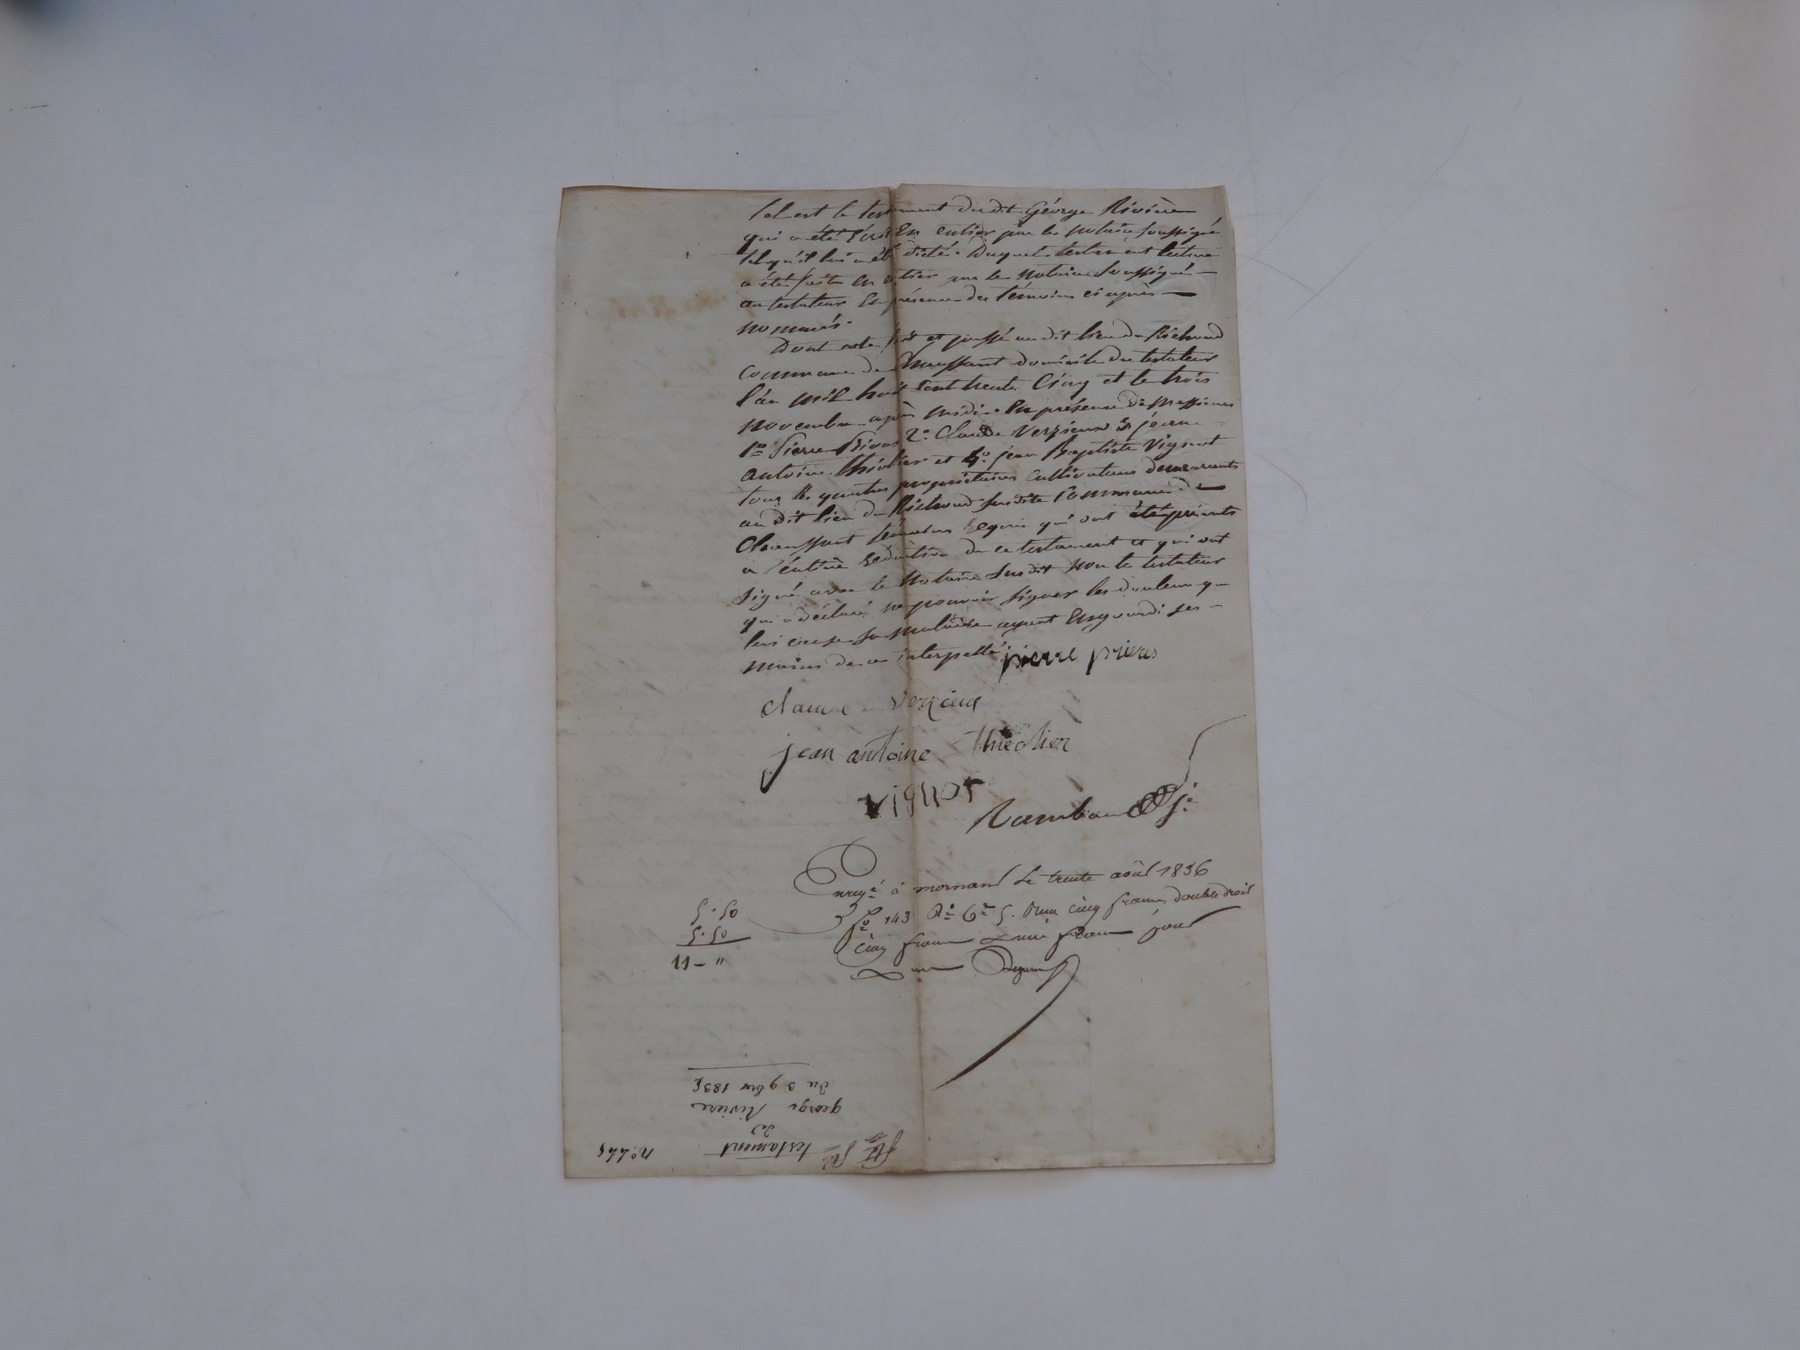 tel est le testament du dit George Rivière
qui a été écrit En entier par le notaire soussigné
tel qu'il lui a été dicté. Duquel testament lecture
a été faite en entier par le Notaire soussigné
au testateur En présence des témoins ci après
nommés.
Dont acte fait et passé au dit lieu du Richoud
commune de Chaussant domicile du testateur
l'an mil huit cent trente Cinq et le trois
novembre après midi. En présence de Messieurs
1º Pierre Privas 2º Claude Verzieux 3º jean
antoine thiollier et 4º jean Baptiste Vignot
tous les quatre propriétaires cultivateurs demeurants
au dit lieu du Richoud susdite Commune de
Chaussant témoins Requis qui ont été présents
a l'entière Rédaction de ce testament et qui ont
signé avec le Notaire susdit non le testateur
qui a déclaré ne pouvoir signer les douleurs que
lui cause sa maladie ayant Engourdi ses
mains de ce interpellé. pierre privas
claude Verzieux
jean antoine thiollier
vignot
Rambaud Je
Enregé à mornant le trente août 1836
fo 143 Ro Ce 5. Reçu cinq francs double droit
5.50
5.50
11 - "
cinq francs Dixme francs pour
testament
de
george Rivière
du 3 9bre 1835
nº 225